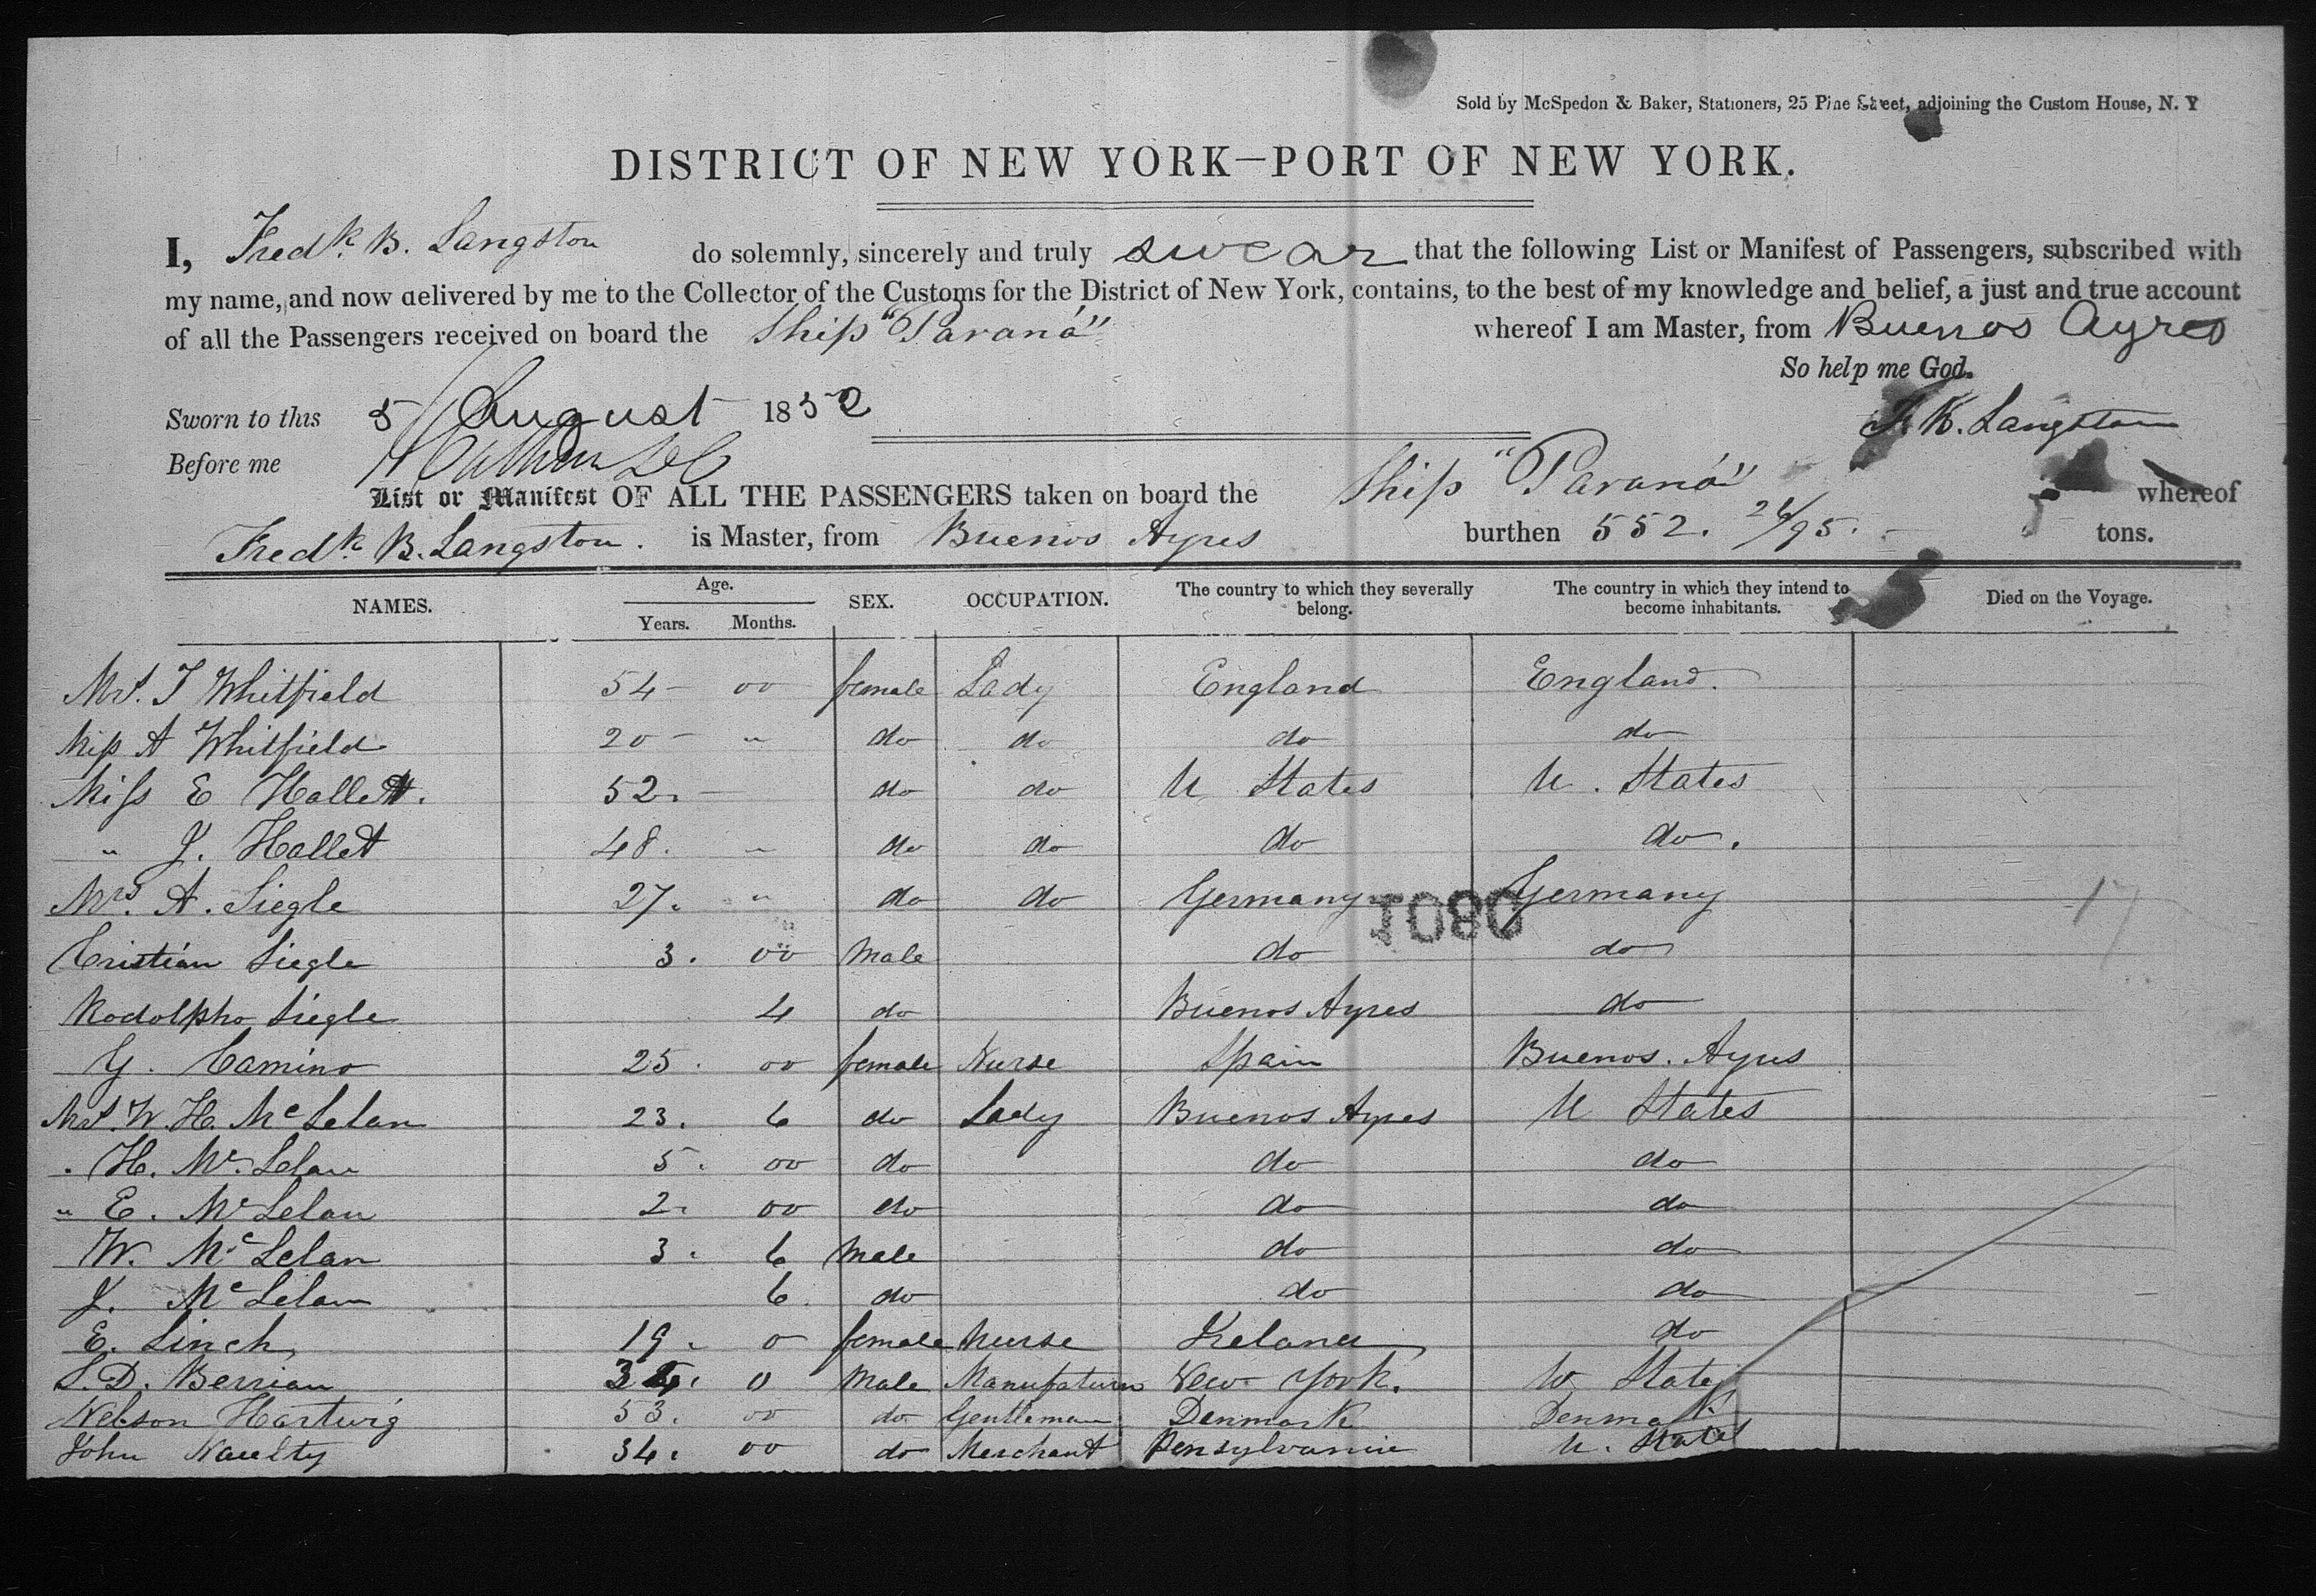 Sold by McSpedon & Baker, Stationers, 25 Pine Street, adjoining the Custom House, N. Y
DISTRICT OF NEW YORK—PORT OF NEW YORK.
I, Fredk. B. Langston do solemnly, sincerely and truly swear that the following List or Manifest of Passengers, subscribed with
my name, and now delivered by me to the Collector of the Customs for the District of New York, contains, to the best of my knowledge and belief, a just and true account
of all the Passengers received on board the Ship "Paraná" whereof I am Master, from Buenos Ayres
So help me God.
Sworn to this 5 August 1852
F. B. Langston
Before me
List or Manifest OF ALL THE PASSENGERS taken on board the Ship "Paraná" whereof
Fredk. B. Langston. is Master, from Buenos Ayres burthen 552. 26/95. tons.
NAMES. Age. Years. Months. SEX. OCCUPATION. The country to which they severally belong. The country in which they intend to become inhabitants. Died on the Voyage.
Mrs. T Whitfield 54 00 female Lady England England.
Miss A Whitfield 20 " do do do do
Miss E Hallett. 52. do do U States U. States
" J. Hallett 48. " do do do do.
Mrs. A. Siegle 27. " do do Germany Germany
1080
17
Cristian Siegle 3. 00 Male do do
Rodolpho Siegle 4 do Buenos Ayres do
Y. Camino 25. 00 female Nurse Spain Buenos. Ayres
Mrs. W. H. McLelan 23. 6 do Lady Buenos Ayres U States
. H. McLelan 5. 00 do do do
" E. McLelan 2. 00 do do do
W. McLelan 3. 6 Male do do
J. McLelan 6. do do do
E. Linch 19. 0 female Nurse Ireland do
S. D. Berrian 0 Male Manufaturer New York. U States
Nelson Hartwig 53. 00 do Gentleman Denmark Denmark
John Naulty 34. 00 do Merchant Pensylvania U. States